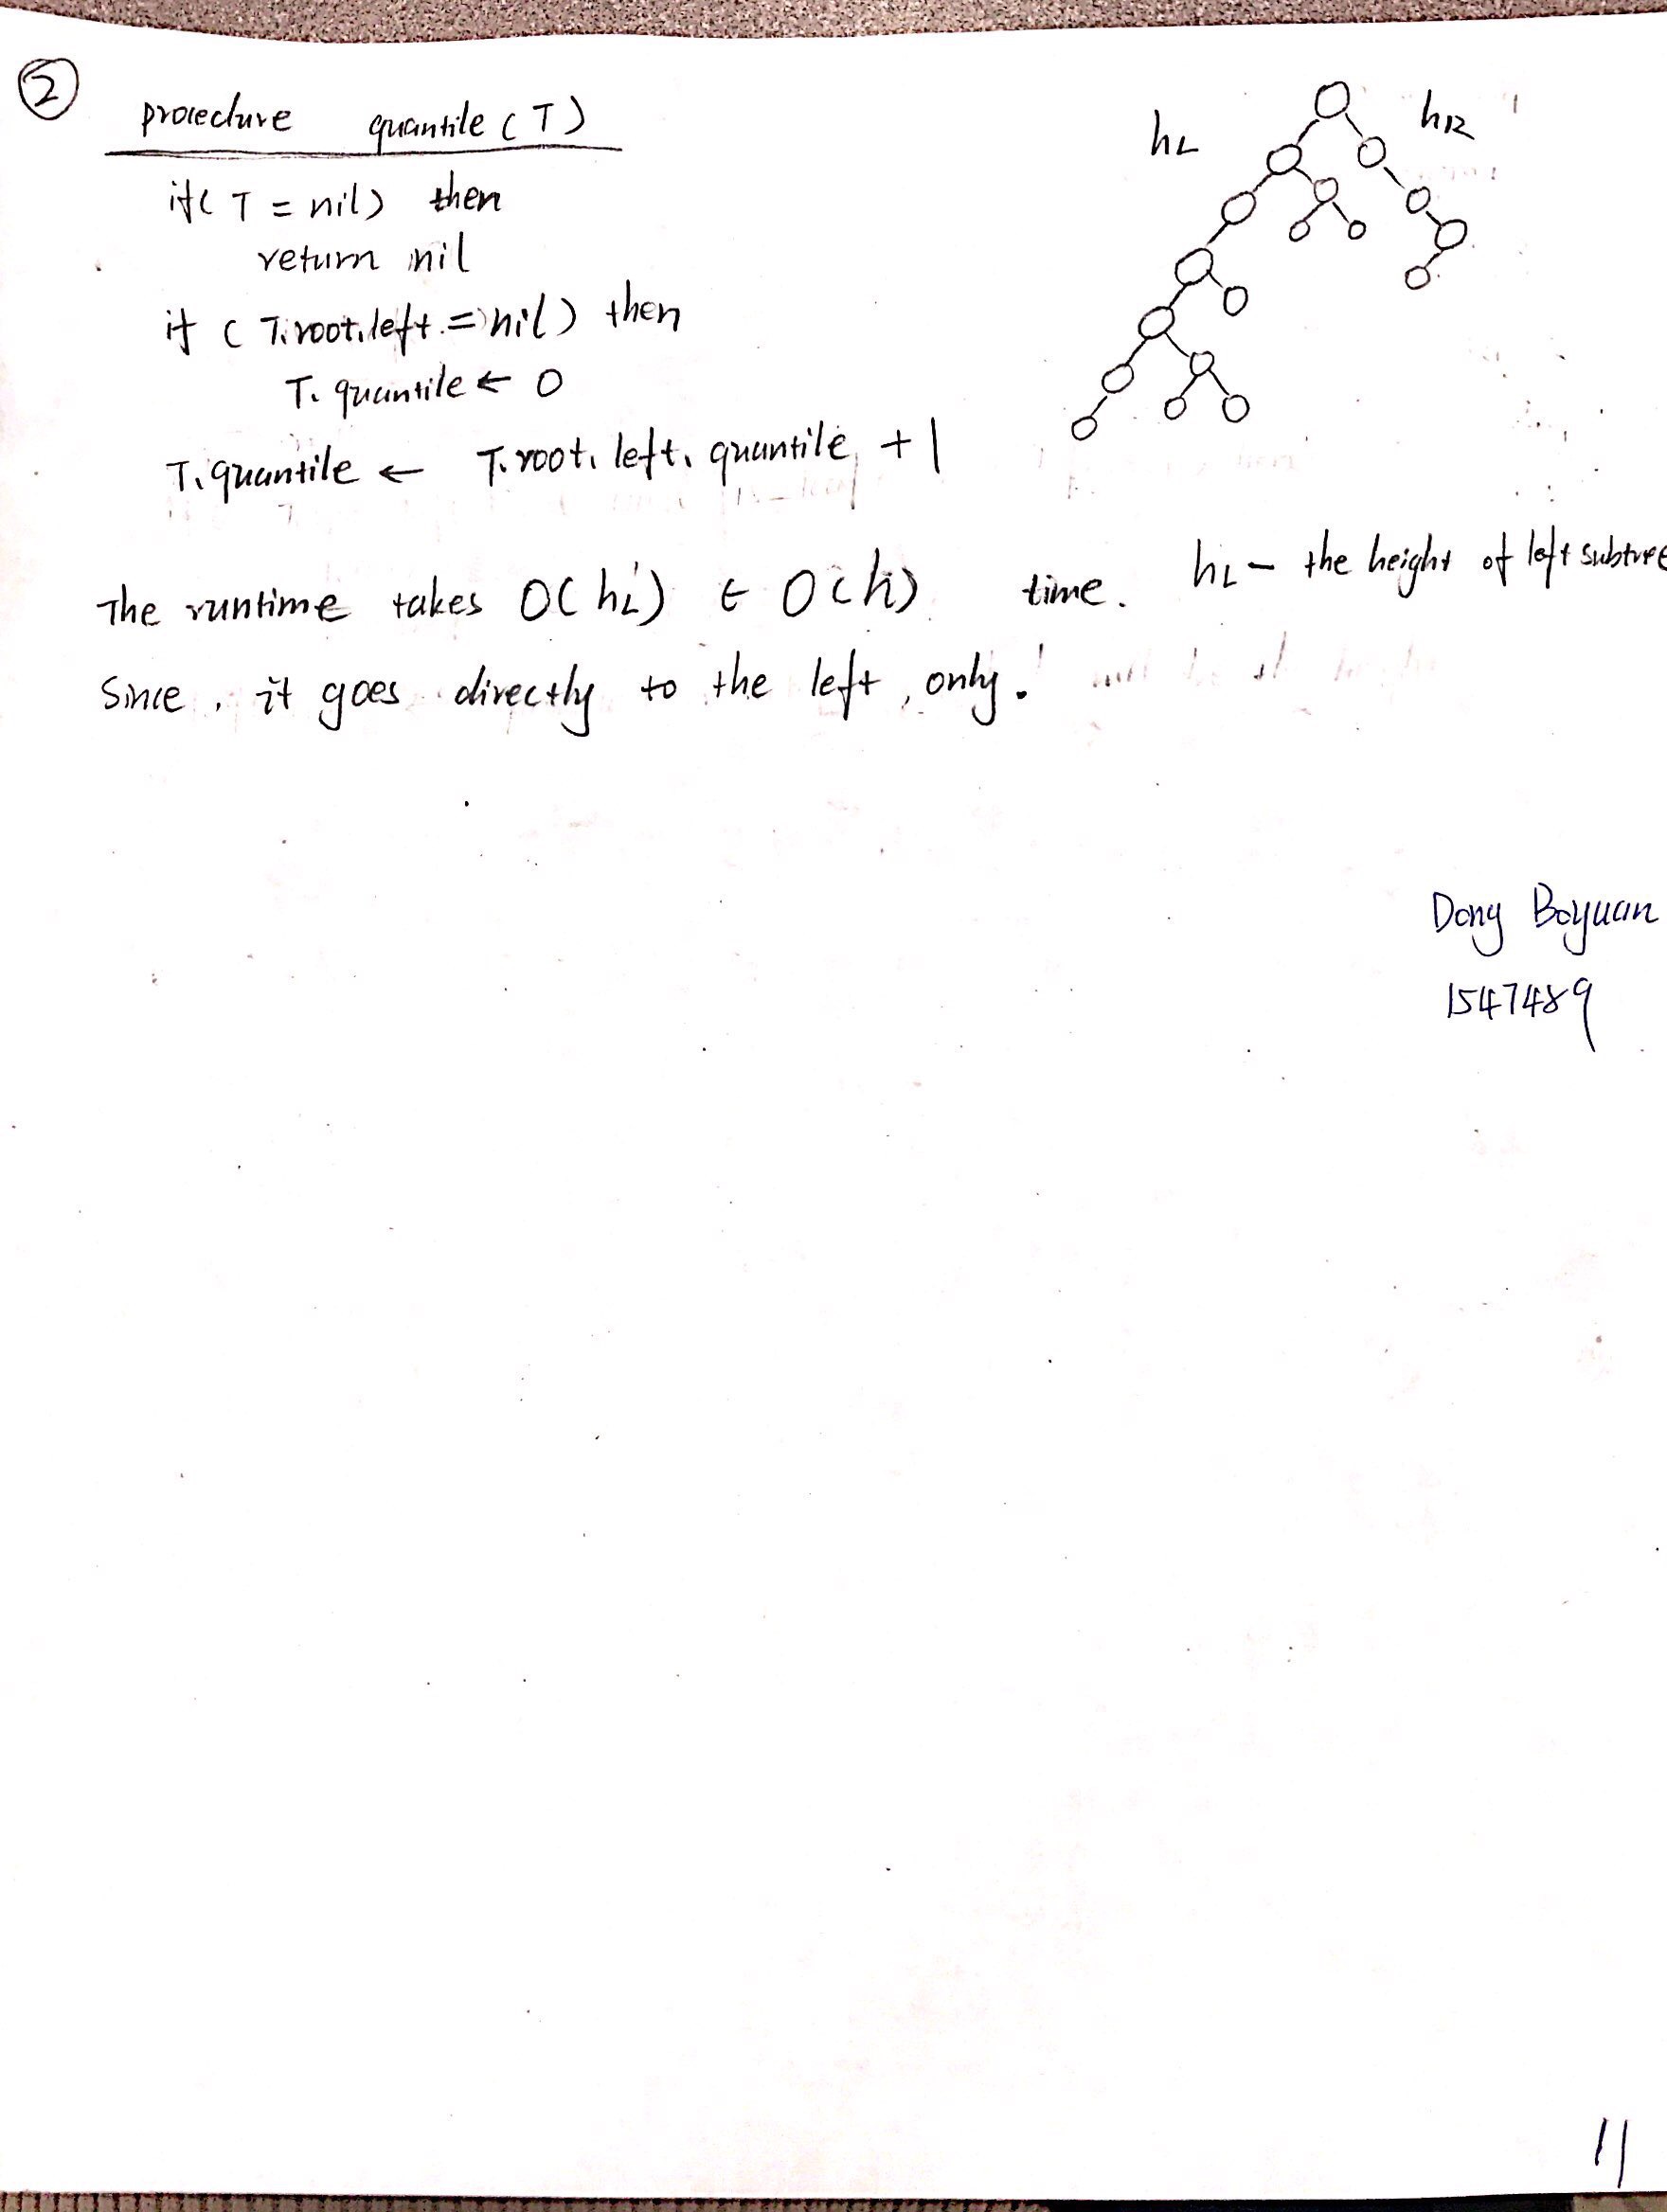 2
procedure quantile (T)
if( T = nil) then
return nil
if ( T.root.left = nil) then
T. quantile ← 0
T.quantile ← T.root. left. quantile + 1
hL
hR
The runtime takes O( hL) ∈ O(h) time. hL — the height of left subtree
Since, it goes directly to the left, only.
Dong Boyuan
1547489
11